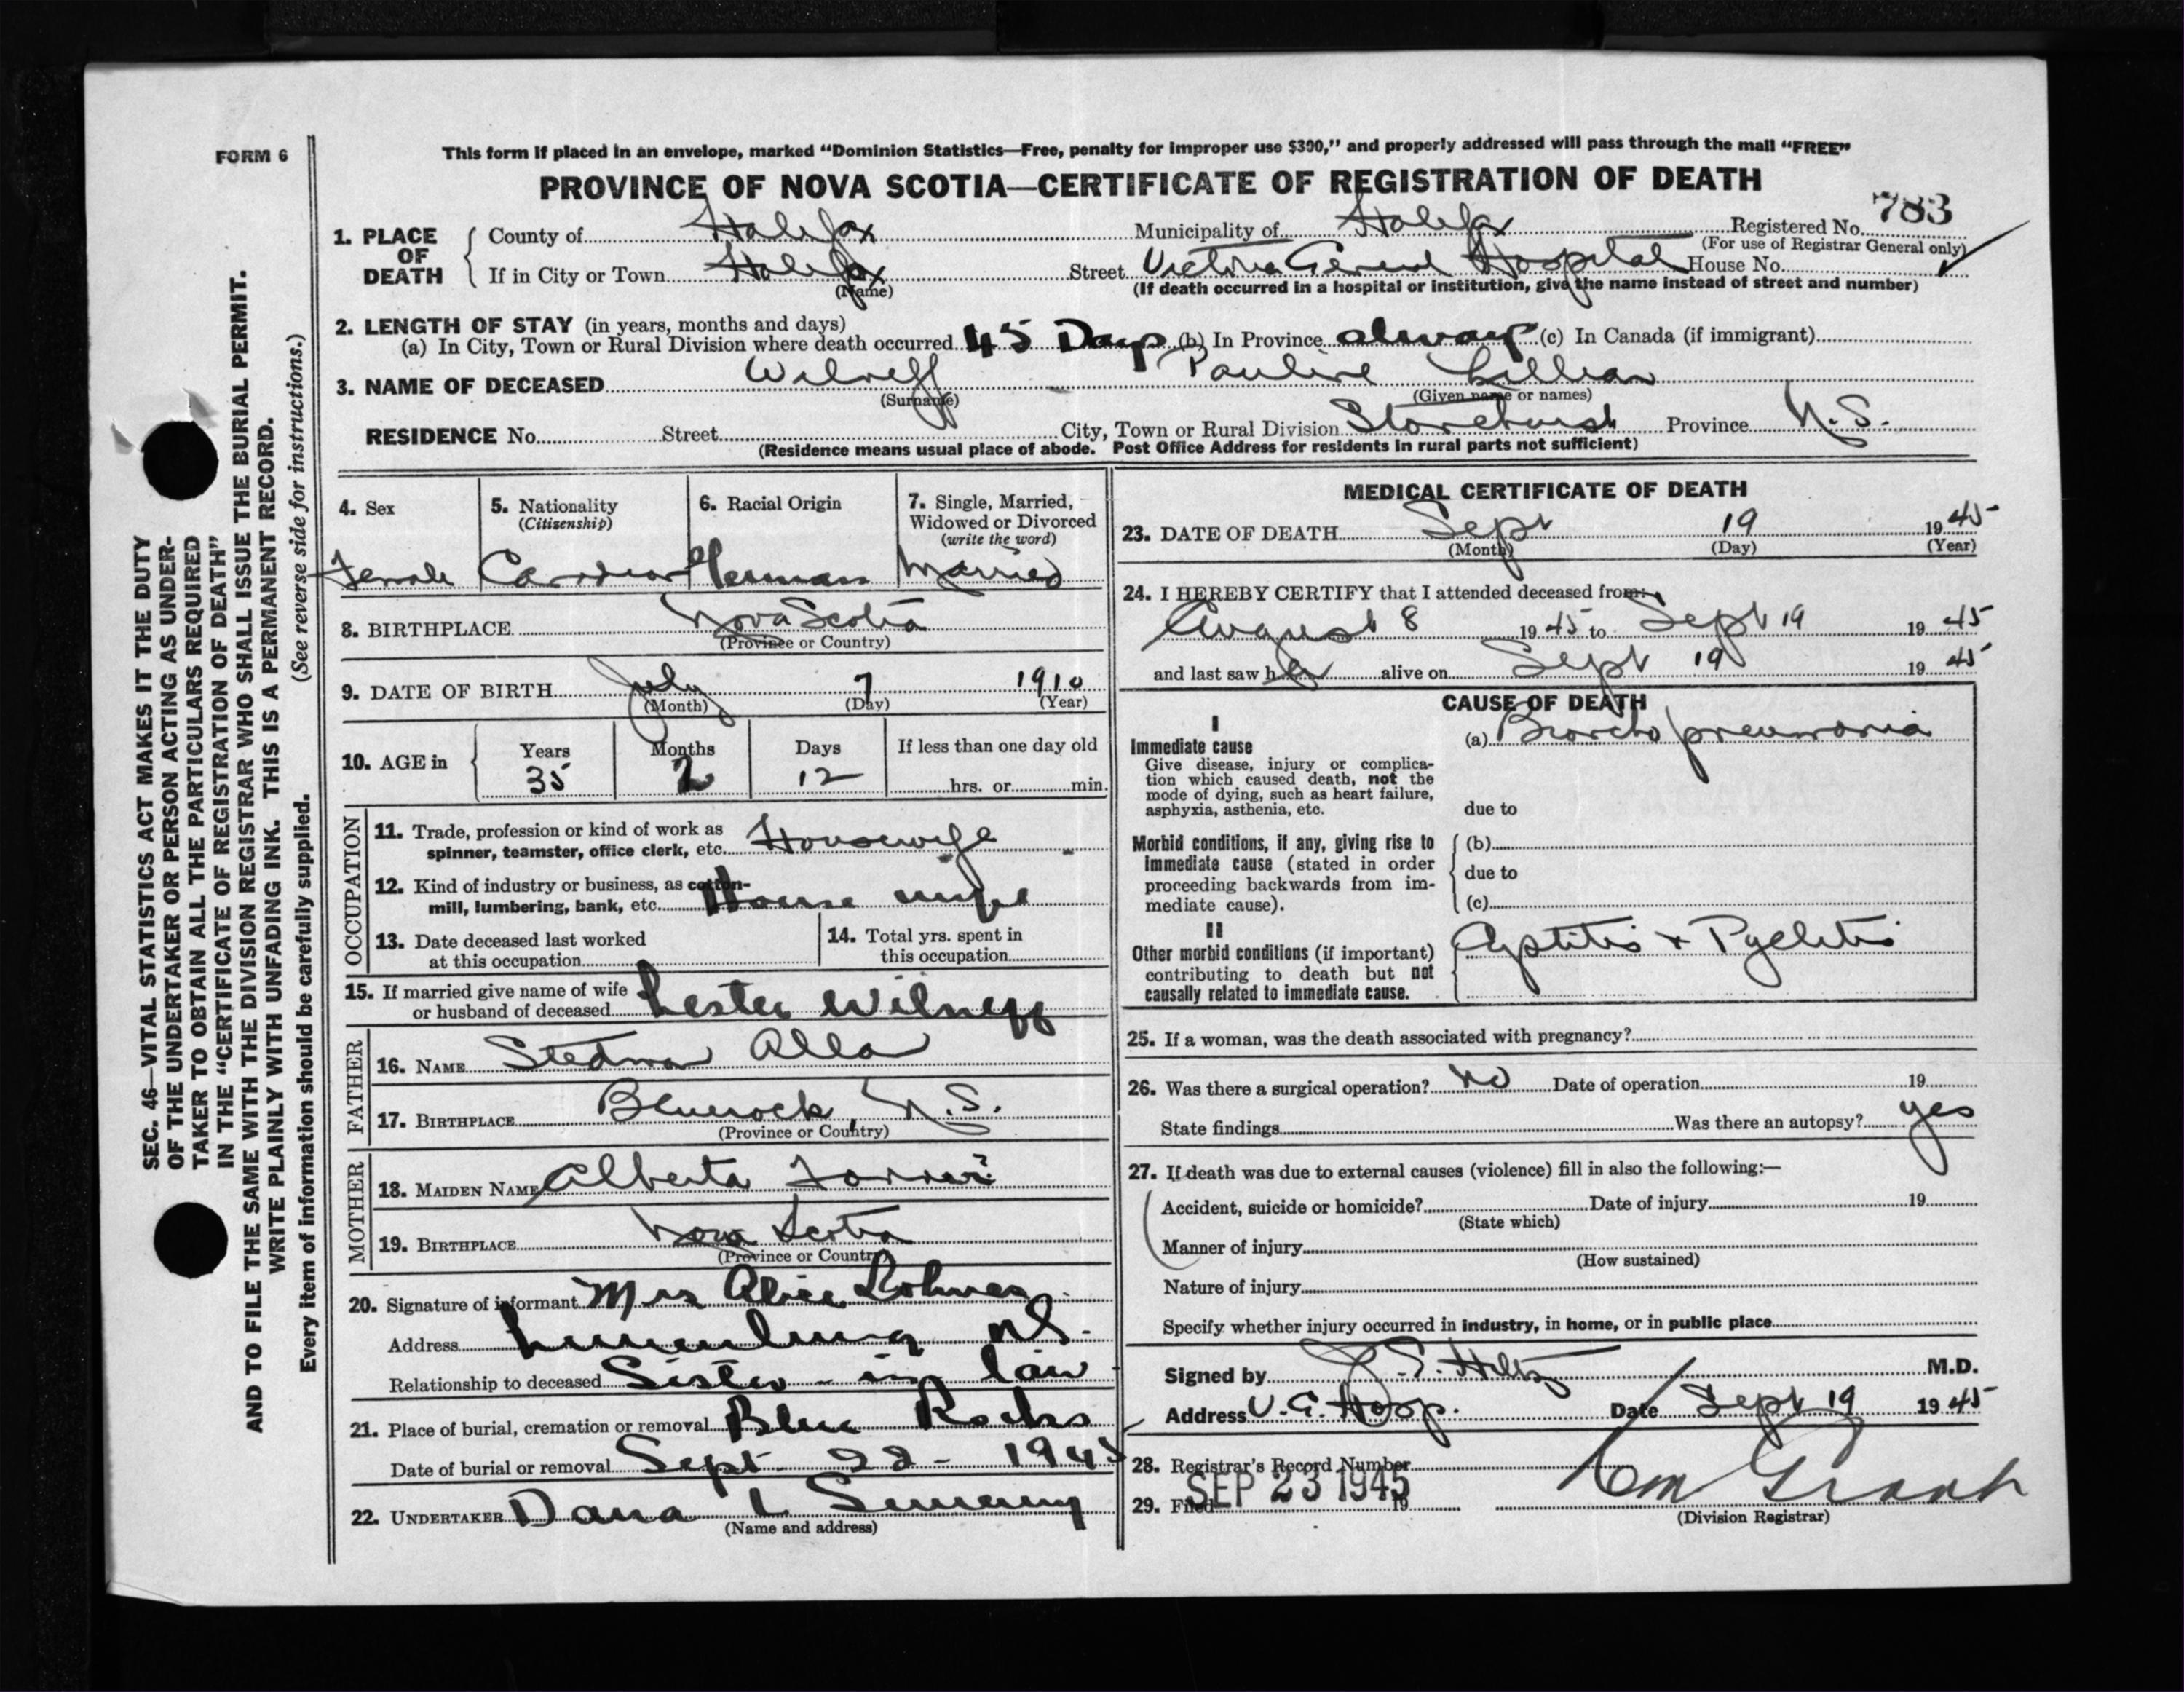 FORM 6
This form if placed in an envelope, marked “Dominion Statistics—Free, penalty for improper use $300,” and properly addressed will pass through the mail “FREE”
PROVINCE OF NOVA SCOTIA—CERTIFICATE OF REGISTRATION OF DEATH
783
1. PLACE OF DEATH
County of Halifax Municipality of Halifax Registered No.
(For use of Registrar General only)
If in City or Town Halifax Street Victoria General Hospital House No.
(Name) (If death occurred in a hospital or institution, give the name instead of street and number)
2. LENGTH OF STAY (in years, months and days)
(a) In City, Town or Rural Division where death occurred 45 Days (b) In Province always (c) In Canada (if immigrant)
3. NAME OF DECEASED Wilneff Pauline Lillian
(Surname) (Given name or names)
RESIDENCE No. Street City, Town or Rural Division Stonehurst Province N.S.
(Residence means usual place of abode. Post Office Address for residents in rural parts not sufficient)
4. Sex
Female
5. Nationality
(Citizenship)
Canadian
6. Racial Origin
German
7. Single, Married,
Widowed or Divorced
(write the word)
Married
8. BIRTHPLACE Nova Scotia
(Province or Country)
9. DATE OF BIRTH July 7 1910
(Month) (Day) (Year)
10. AGE in Years Months Days If less than one day old
35 2 12 hrs. or min.
OCCUPATION
11. Trade, profession or kind of work as
spinner, teamster, office clerk, etc. Housewife
12. Kind of industry or business, as cotton-
mill, lumbering, bank, etc. House wife
13. Date deceased last worked
at this occupation
14. Total yrs. spent in
this occupation
15. If married give name of wife
or husband of deceased Lester Wilneff
FATHER
16. NAME Stedman
17. BIRTHPLACE Bluerock, N.S.
(Province or Country)
MOTHER
18. MAIDEN NAME Alberta
19. BIRTHPLACE Nova Scotia
(Province or Country)
20. Signature of informant Mrs Alice Lohnes
Address Lunenburg NS.
Relationship to deceased Sister-in law
21. Place of burial, cremation or removal Blue Rocks
Date of burial or removal Sept 22 - 1945
22. UNDERTAKER Dana L Sweeny
(Name and address)
MEDICAL CERTIFICATE OF DEATH
23. DATE OF DEATH Sept 19 1945
(Month) (Day) (Year)
24. I HEREBY CERTIFY that I attended deceased from:
August 8 1945 to Sept 19 1945
and last saw her alive on Sept 19 1945
CAUSE OF DEATH
I
Immediate cause
Give disease, injury or complica-
tion which caused death, not the
mode of dying, such as heart failure,
asphyxia, asthenia, etc.
(a) Broncho pneumonia
due to
Morbid conditions, if any, giving rise to
immediate cause (stated in order
proceeding backwards from im-
mediate cause).
(b)
due to
(c)
II
Other morbid conditions (if important)
contributing to death but not
causally related to immediate cause.
Cystitis + Pyelitis
25. If a woman, was the death associated with pregnancy?
26. Was there a surgical operation? No Date of operation 19
State findings Was there an autopsy? yes
27. If death was due to external causes (violence) fill in also the following:—
Accident, suicide or homicide? Date of injury 19
(State which)
Manner of injury
(How sustained)
Nature of injury
Specify whether injury occurred in industry, in home, or in public place
Signed by M.D.
Address V. G. Hosp. Date Sept 19 1945
28. Registrar's Record Number
29. Filed SEP 23 1945 19
Grant
(Division Registrar)
SEC. 46—VITAL STATISTICS ACT MAKES IT THE DUTY
OF THE UNDERTAKER OR PERSON ACTING AS UNDER-
TAKER TO OBTAIN ALL THE PARTICULARS REQUIRED
IN THE “CERTIFICATE OF REGISTRATION OF DEATH”
AND TO FILE THE SAME WITH THE DIVISION REGISTRAR WHO SHALL ISSUE THE BURIAL PERMIT.
WRITE PLAINLY WITH UNFADING INK. THIS IS A PERMANENT RECORD.
Every item of information should be carefully supplied. (See reverse side for instructions.)